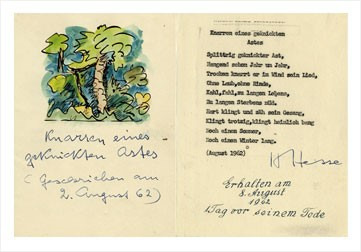 Knarren eines
geknickten Astes
(Geschrieben am
2. August 62)
Knarren eines geknickten
Astes
Splittrig geknickter Ast,
Hangend schon Jahr um Jahr,
Trocken knarrt er im Wind sein Lied,
Ohne Laub, ohne Rinde,
Kahl, fahl, zu langen Lebens,
Zu langen Sterbens müd.
Hart klingt und zäh sein Gesang,
Klingt trotzig, klingt heimlich bang
Noch einen Sommer,
Noch einen Winter lang.
(August 1962)
H Hesse
Erhalten am
8. August
1962
1 Tag vor seinem Tode